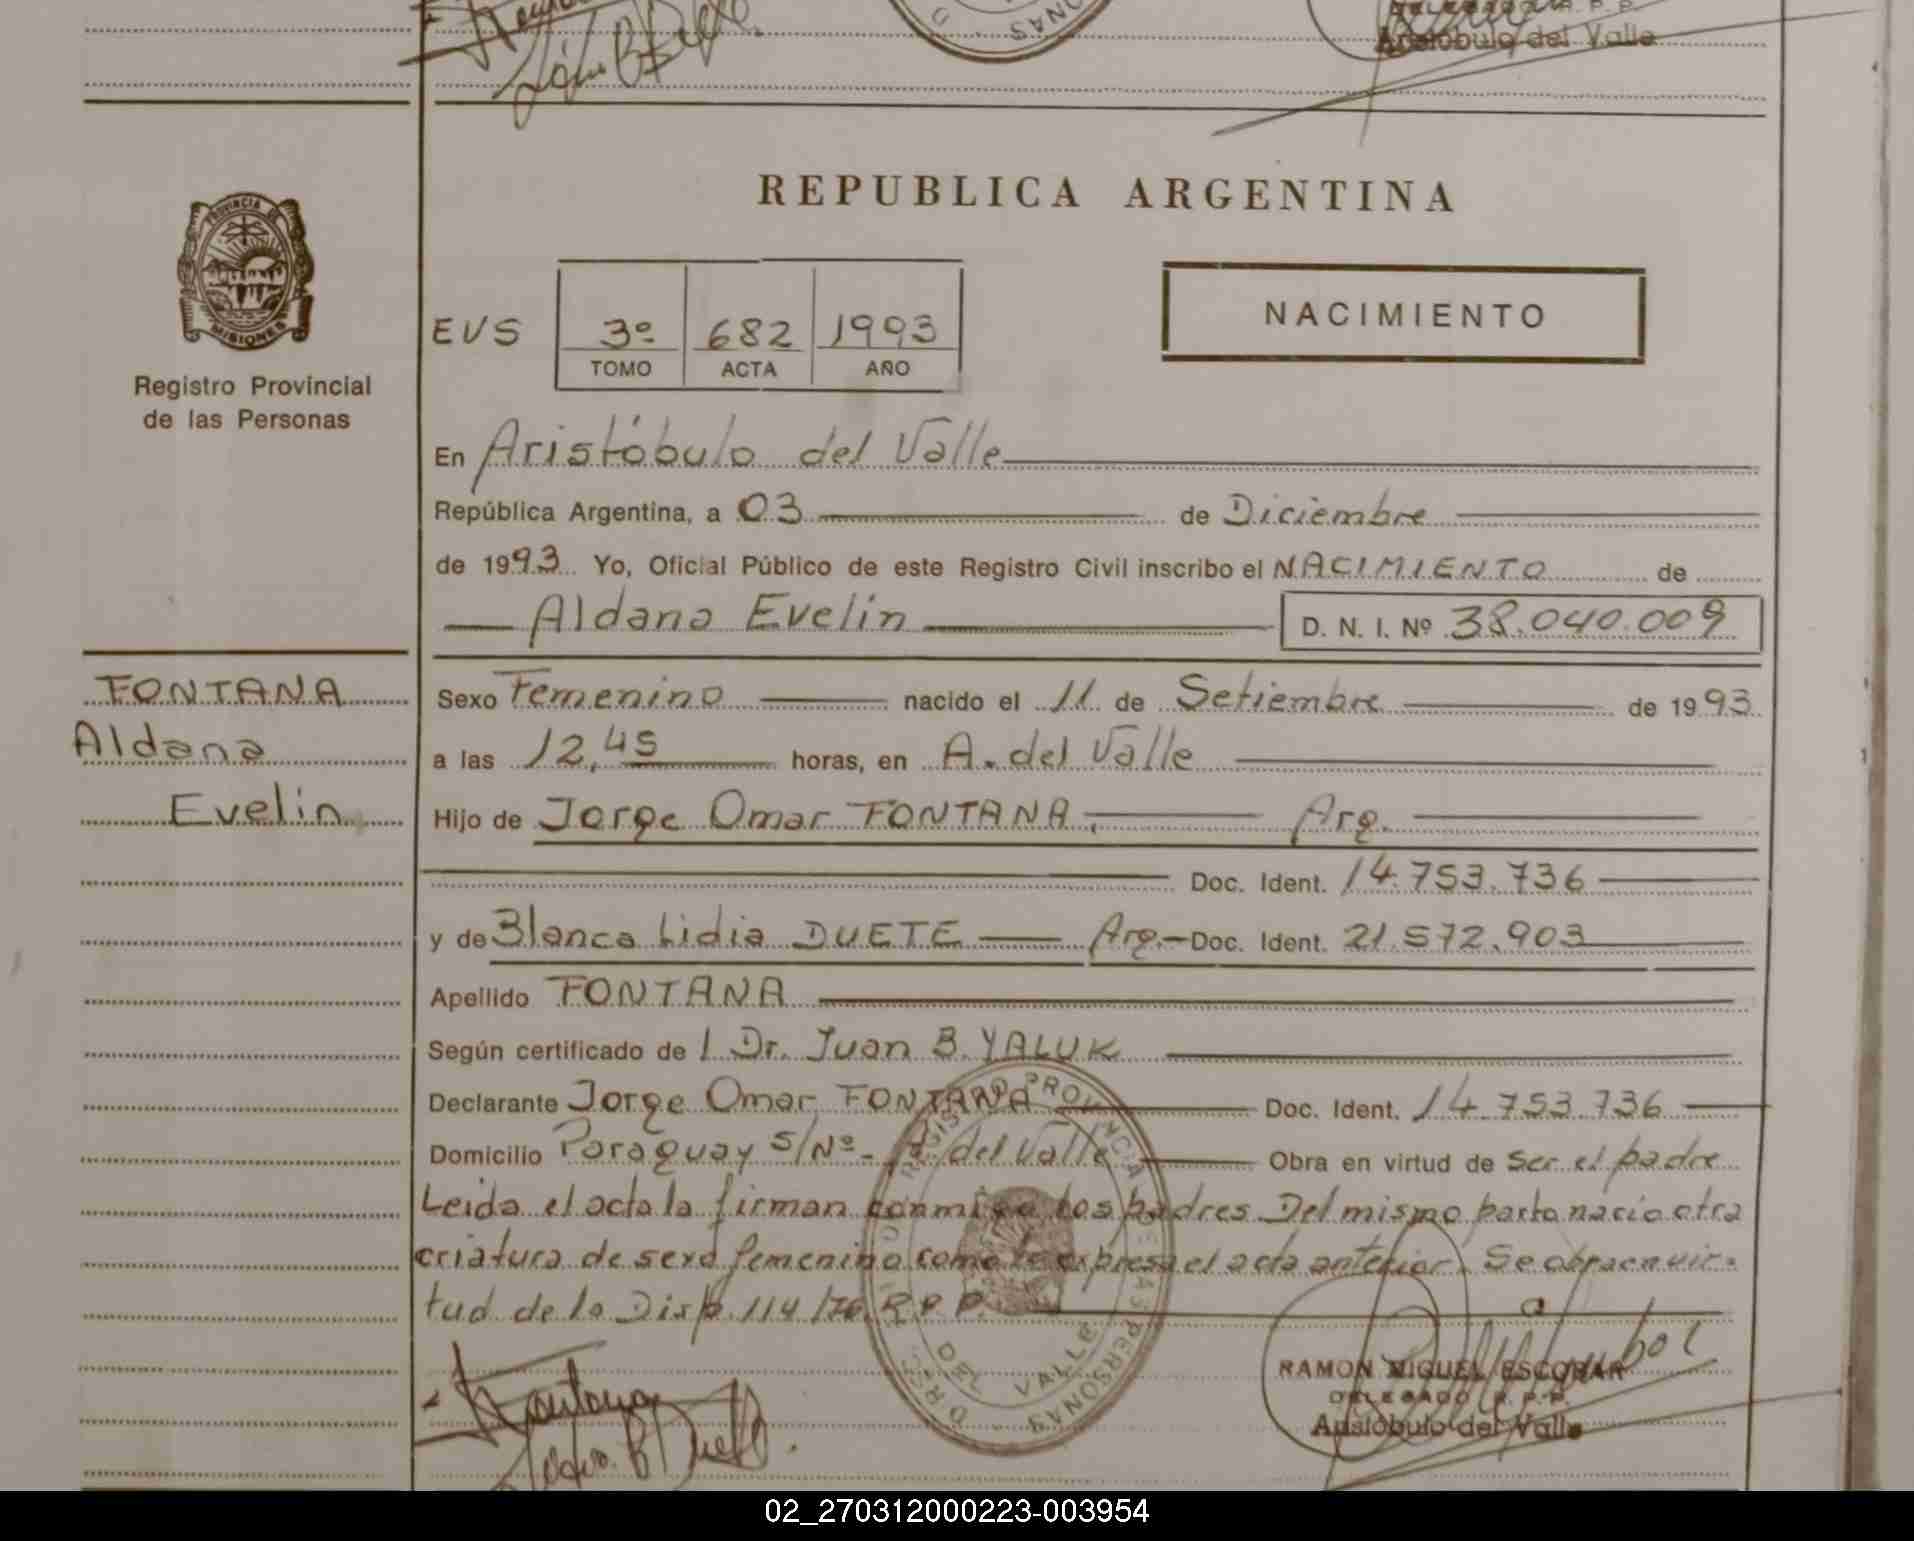 Aristóbulo del Valle
PROVINCIA DE
MISIONES
Registro Provincial
de las Personas
REPUBLICA ARGENTINA
NACIMIENTO
EVS 3º 682 1993
TOMO ACTA AÑO
En Aristóbulo del Valle
República Argentina, a 03 de Diciembre
de 1993 Yo, Oficial Público de este Registro Civil inscribo el NACIMIENTO de
Aldana Evelin D. N. I. Nº 38.040.009
FONTANA
Aldana
Evelin
Sexo Femenino nacido el 11 de Setiembre de 1993
a las 12,45 horas, en A. del Valle
Hijo de Jorge Omar FONTANA. Arg.
Doc. Ident. 14.753.736
y de Blanca Lidia DUETE Arg.- Doc. Ident. 21.572.903
Apellido FONTANA
Según certificado de l Dr. Juan B. YALUK
Declarante Jorge Omar FONTANA Doc. Ident. 14.753.736
Domicilio Paraguay S/Nº - A. del Valle Obra en virtud de ser el padre
Leida el acta la firman conmigo los padres. Del mismo parto nacio otra
criatura de sexo femenino como lo expresa el acta anterior. Se obra en vir-
tud de la Disp. 114/76 R.P.P.
REGISTRO PROVINCIAL DE LAS PERSONAS
DEL VALLE
RAMON MIGUEL ESCOBAR
DELEGADO R.P.P.
Aristóbulo del Valle
02_270312000223-003954